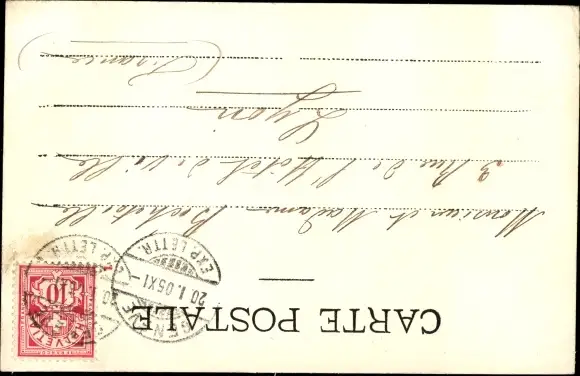 CARTE POSTALE
GENÈVE
20. I. 05 XI
EXP. LETTR.
10
HELVETIA
EXP. LETTR.
Monsieur et Madame
3 Rue de l'Hôtel de Ville
Lyon
(France)